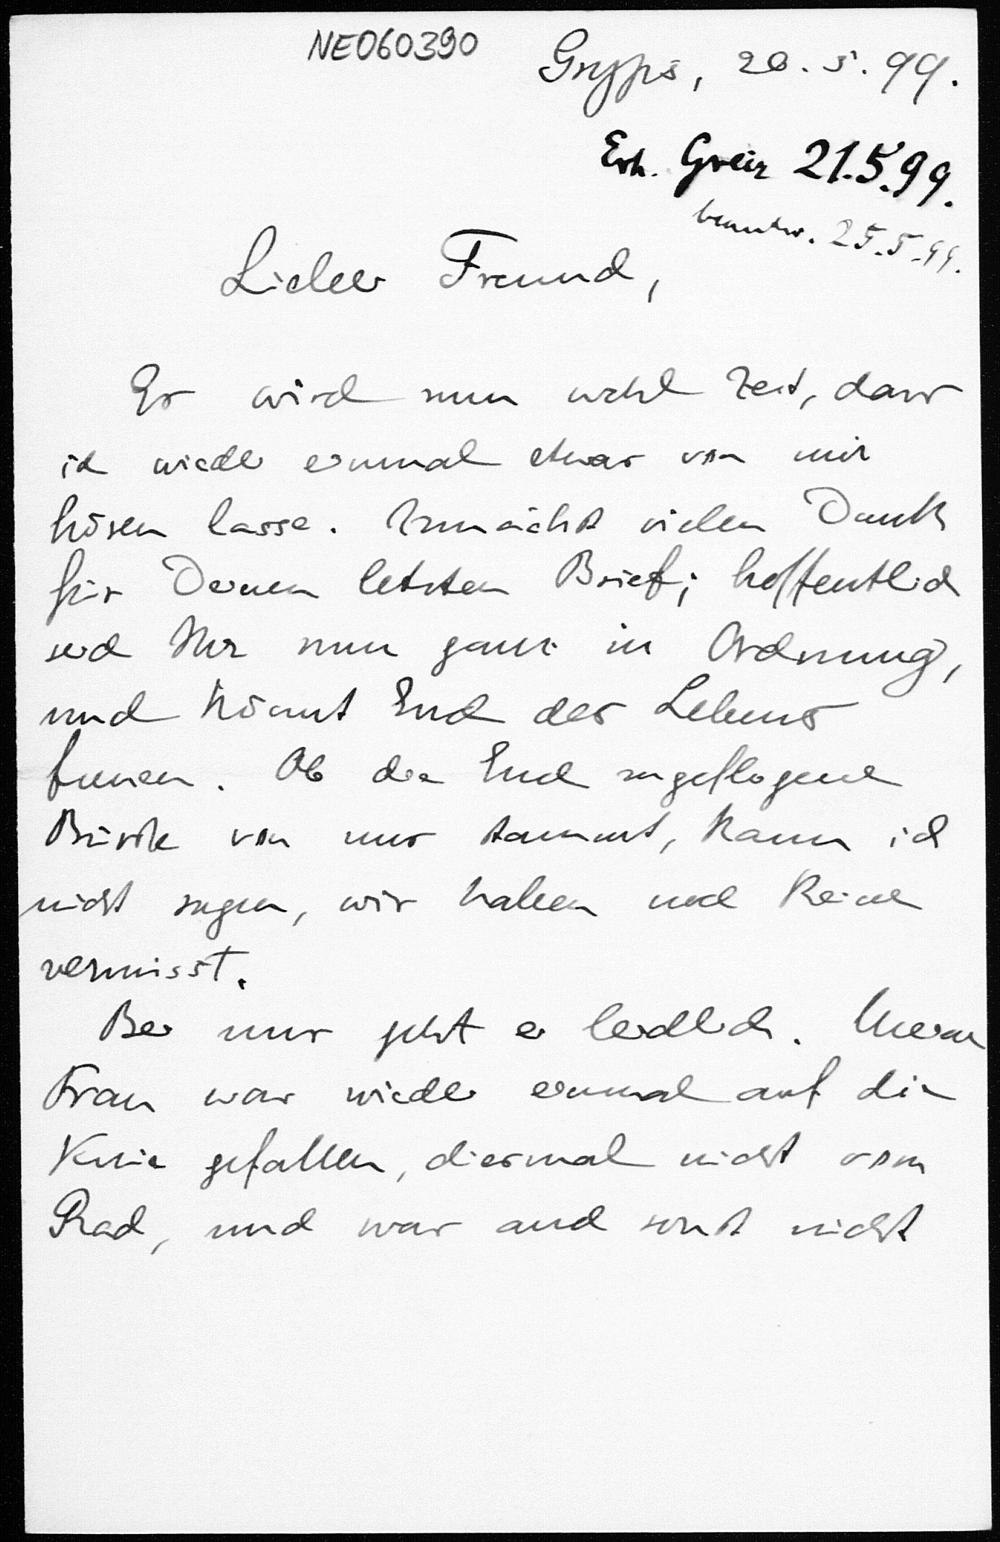 NE060390
Gryps, 20. 5. 99.
Erh. Greiz 21.5.99.
beantw. 25.5.99.
Lieber Freund,
Es wird nun wohl Zeit, dass
ich wieder einmal etwas von mir
hören lasse. Zunächst vielen Dank
für Deinen letzten Brief; hoffentlich
seid Ihr nun ganz in Ordnung,
und könnt Euch des Lebens
freuen. Ob die Euch zugeflogene
von uns stammt, kann ich
nicht sagen, wir haben noch keine
vermisst.
Bei uns geht es leidlich. Meine
Frau war wieder einmal auf die
Knie gefallen, diesmal nicht vom
Rad, und war auch sonst nicht